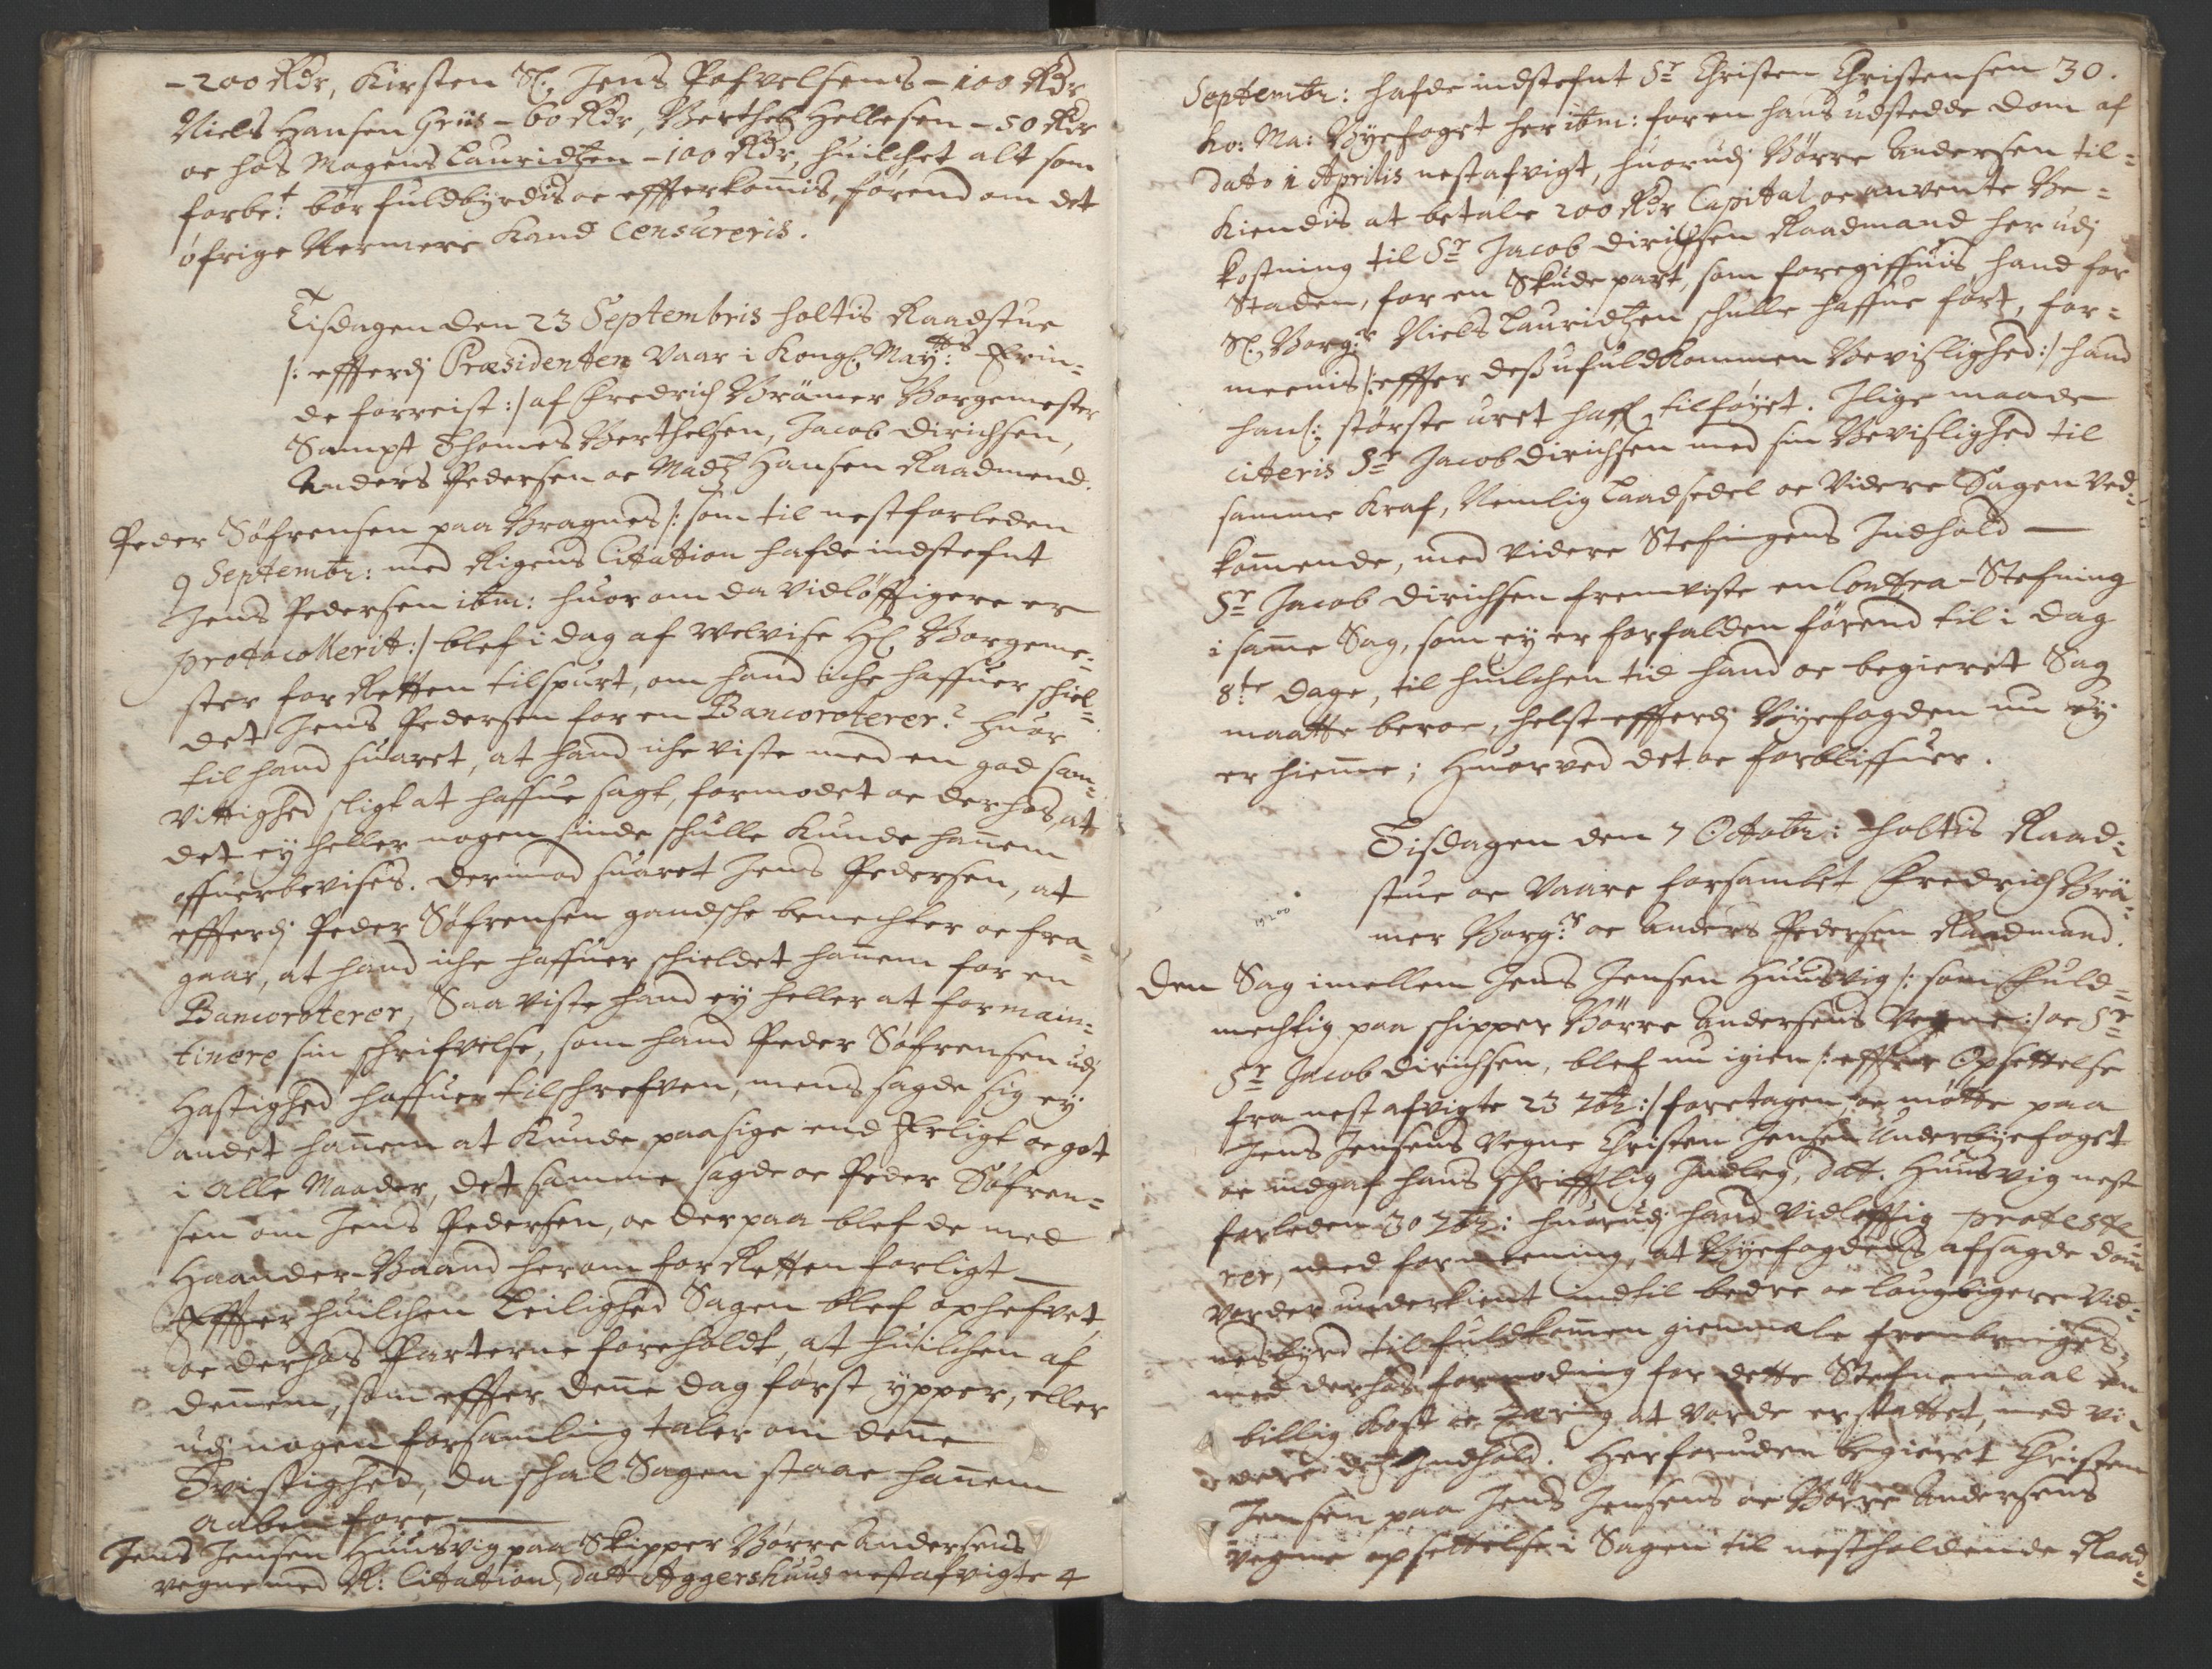 - 200 Rdr, Kirsten Sl. Jens Pofvelsens - 100 Rdr
Niels Hansen Griis - 60 Rdr, Berthel Hellesen - 50 Rdr
oc hos Mogens Lauridtzen - 100 Rdr, huilchet alt som
forbe:t bør fuldbyrdis oc effterkomis, førend om det
øfrige Nermere Kand Censureris.
Tisdagen den 23 Septembris holtis Raadstue
/: effterdj Præsidenten vaar i Kongl. May:tts Erin-
de forreist :/ af Fredrich Brämer Borgemester
Sampt Thomes Berthelsen, Jacob Dirichsen,
Anders Pedersen oc Madtz Hansen Raadmend.
Peder Søfrensen paa Bragnes /: som til nestforleden
9 Septembr: med Rigens Citation hafde indstefnt
Jens Pedersen ibm: huor om da vidløfftigere er
protocollerit :/ blef i dag af Velvise Hl. Borgeme-
ster for Retten tilspurt, om hand iche haffuer schiel-
det Jens Pedersen for en Bancoroterer? Huor
til hand suaret, at hand iche viste med en god sam-
vittighed sligt at haffue sagt, formodet oc derhos, at
det ey heller nogen sinde schulle kunde hanem
offuerbevises. Derimod suaret Jens Pedersen, at
effterdj Peder Søfrensen gandsche benechter oc fra-
gaar, at hand iche haffuer schieldet hanem for en
Bancoroterer, Saa viste hand ey heller at formain-
tinere sin schrifvelse, som hand Peder Søfrensen udj
Hastighed haffuer tilschrefven, mens sagde sig ey
andet hanem at kunde paasige end Erligt oc got
i alle Maader, det samme sagde oc Peder Søfren-
sen om Jens Pedersen, oc der paa blef de med
Haander-Baand herom for Retten forligt
Effter huilchen Leilighed Sagen blef ophefvet,
oc derhos Parterne foreholdt, at huilchen af
denem, som effter dene dag først ypper, eller
udj nogen forsamling taler om dene
Tvistighed, da schal Sagen staae hanem
aaben fore
Jens Jensen Huusvig paa Skipper Børre Andersens
vegne med R: Citation, datt Aggershuus nestafvigte 4
Septembr: hafde indstefnt Sr Christen Christensen 30.
Ko: Ma: Byefogt her ibm: for en hans udstedde dom af
dato 1 Aprilis nestafvigt, huorudj Børre Andersen til-
kiendis at betale 200 Rdr Capital oc anvente Be-
kostning til Sr Jacob Dirichsen Raadmand her udj
Staden, for en Skude part, som foregiffuis hand for
Sl. Borg:r Niels Lauridtzen schulle haffue ført, for-
meenis /: effter dess ufuldkommen Bevislighed :/ hand
hans største uret haff tilføyet. Jlige maade
citeris Sr Jacob Dirichsen med sin Bevislighed til
samme kraf, Nemlig Laadsedel oc videre Sagen ved-
komende, med videre Stefningens Indhold
Sr Jacob Dirichsen fremviste en Contra-Stefning
i same Sag, som ey er forfalden førend til i dag
8te dage, til huilchen tid hand oc begieret Sag
maatte beroe, helst effterdj Byefogden nu ey
er hieme; Huorved det oc forbliffuer.
Tisdagen den 7 Octobr: holtis Raad-
stue oc vaare forsamlet Fredrich Brä-
mer Borg:r oc Anders Pedersen Raadmand.
Den Sag imellem Jens Jensen Huusvig /: som fuld-
mechtig paa schipper Børre Andersens Vegne :/ oc Sr
Sr Jacob Dirichsen, blef nu igien /: effter Opsettelse
fra nest afvigte 23 7br :/ foretagen, oc møtte paa
Jens Jensens vegne Christen Jensen Underbyefogt
oc indgaf hans schrifftlig Indleg, datt. Huusvig nest
forleden 30 7br: huorudj hand vidløfftig proteste-
rer, med formeening, at Byefogdens afsagde dom
vorder underkient indtil bedre oc laugligere vid-
nesbyrd til fuldkomen giennæle frembringes,
med derhos formoding for dette Stefnemaal en
billig kost oc tæring at vorde erstattet, med vi-
dere des Indhold. Herforuden begieret Christen
Jensen paa Jens Jensens oc Børre Andersens
vegne opsettelse i Sagen til nestholdende Raad-